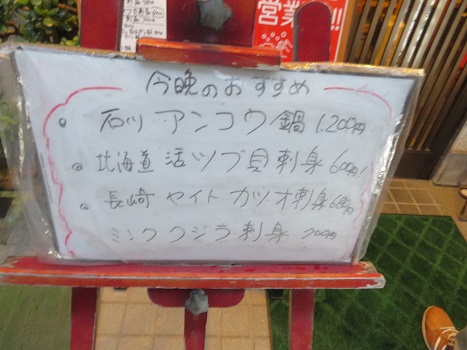 営業
今晩のおすすめ
アンコウ鍋 1,200円
北海道 活ツブ貝刺身 600円
長崎 ヤイトカツオ刺身 680円
ミンククジラ刺身 700円